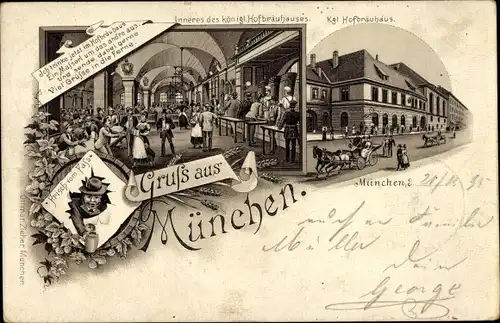 Inneres des königl. Hofbräuhauses.
Kgl. Hofbräuhaus.
Ich trinke jetzt im Hofbräuhaus
Ein Mass'l um das andre aus,
Und sende dabei gerne
Viel Grüsse in die Ferne.
Frisch vom Fass.
Gruß aus
München.
München, d.
Müller
Dein
George
Ottmar Zieher, München